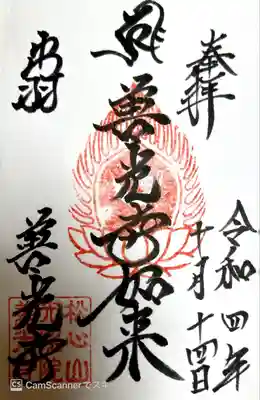 奉拝
令和四年
十月十四日
善光寺如来
出羽
善光寺
松心山
CS CamScannerでスキ